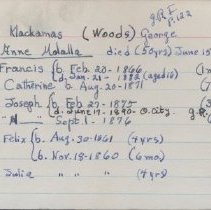 g.R. I
p.122
Klackamas (Woods) George
Anne Molalla died (50 yrs) June 15
Francis { b. Feb. 20 - 1866
d. Jan. 21 - 1882 (aged 16)
Catherine b. Aug. 20 - 1871
Joseph { b. Feb. 27 - 1875
d. June 17 - 1890 - O. City
" " Sept. 1 - 1876
Felix { b. Aug. 30 - 1861 (4 yrs)
b. Nov. 18 - 1860 (6 mo)
Julia " " (4 yrs)